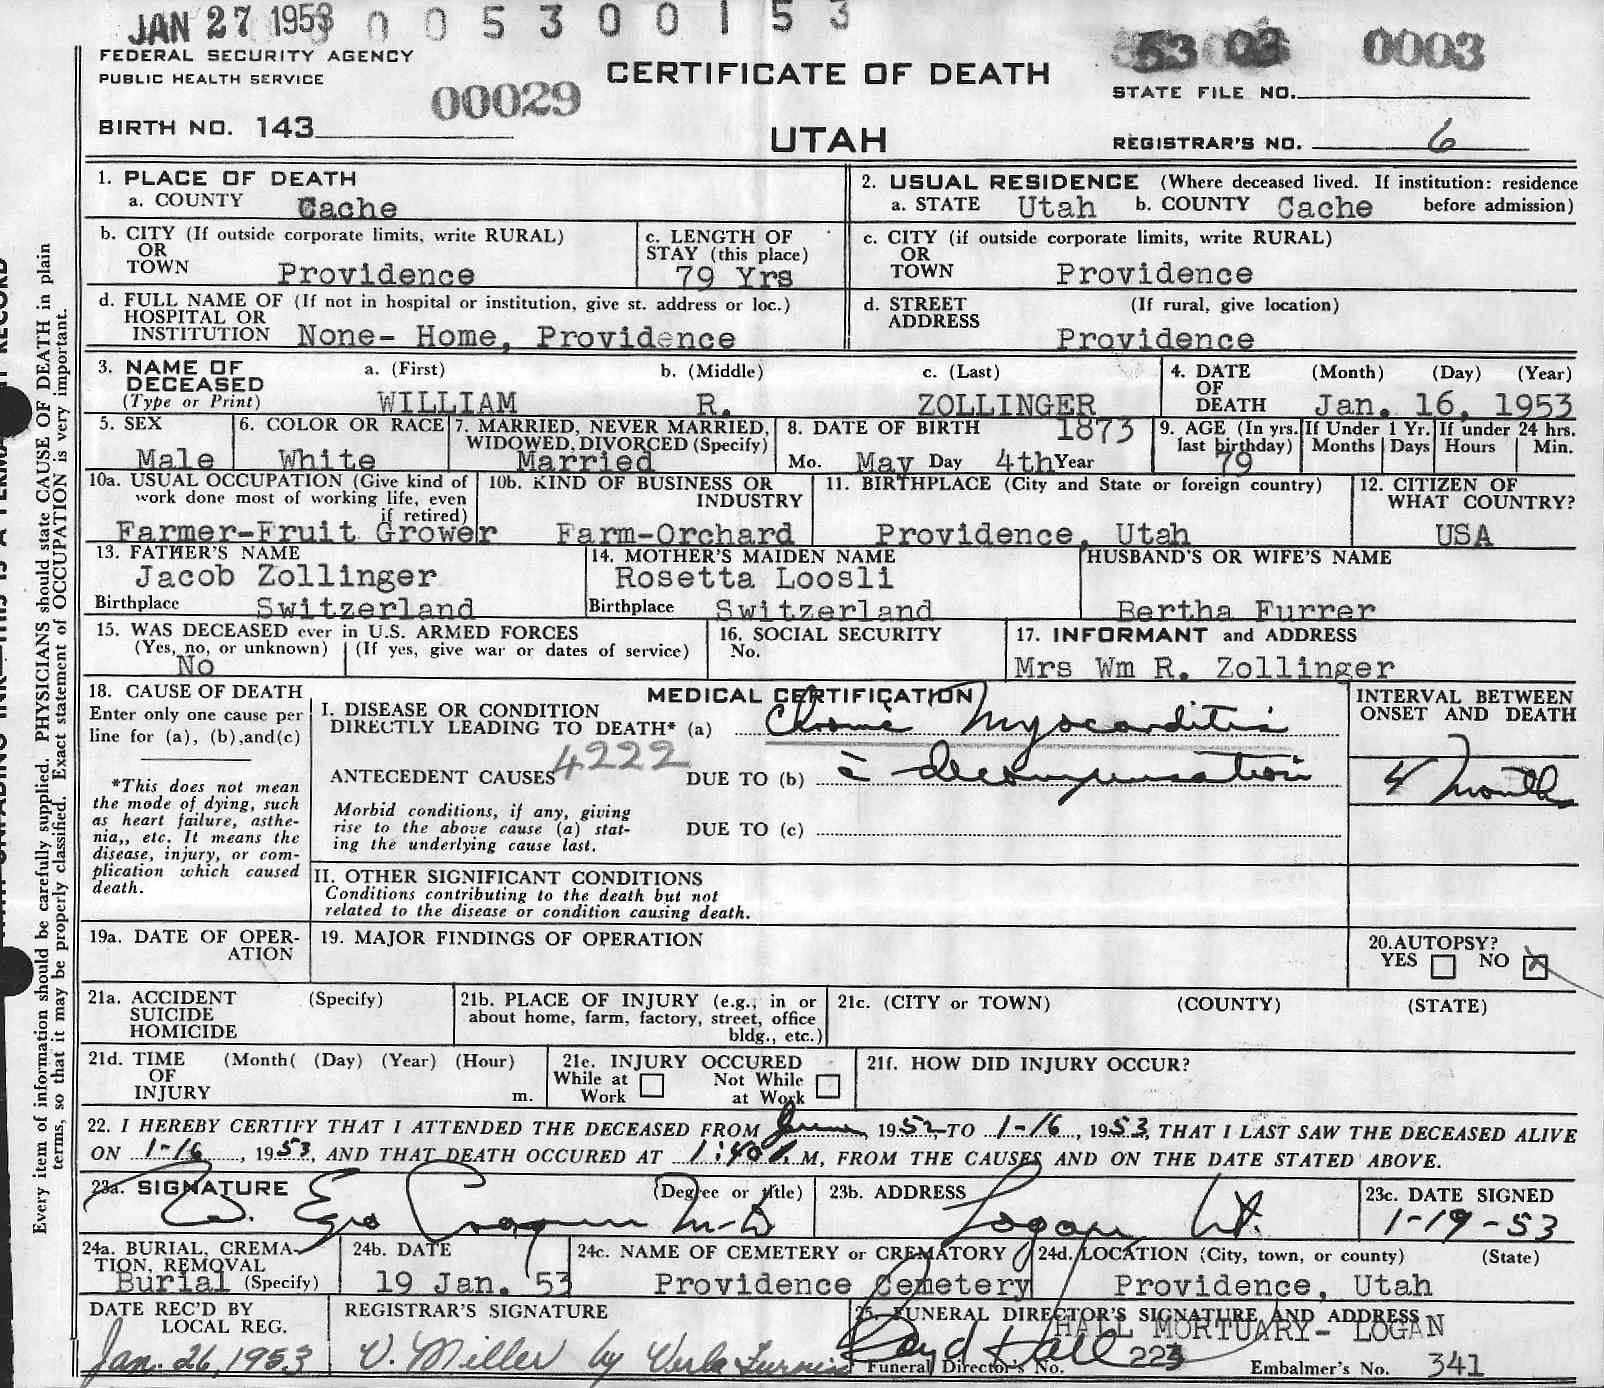 JAN 27 1953 0 0 5 3 0 0 1 5 3
FEDERAL SECURITY AGENCY
PUBLIC HEALTH SERVICE
00029
CERTIFICATE OF DEATH
53 03 0003
STATE FILE NO.
BIRTH NO. 143
UTAH
REGISTRAR'S NO. 6
1. PLACE OF DEATH
a. COUNTY Cache
2. USUAL RESIDENCE (Where deceased lived. If institution: residence
a. STATE Utah b. COUNTY Cache before admission)
b. CITY (If outside corporate limits, write RURAL)
OR
TOWN Providence
c. LENGTH OF
STAY (this place)
79 Yrs
c. CITY (if outside corporate limits, write RURAL)
OR
TOWN Providence
d. FULL NAME OF (If not in hospital or institution, give st. address or loc.)
HOSPITAL OR
INSTITUTION None- Home, Providence
d. STREET (If rural, give location)
ADDRESS
Providence
3. NAME OF
DECEASED
(Type or Print)
a. (First) b. (Middle) c. (Last)
WILLIAM R. ZOLLINGER
4. DATE (Month) (Day) (Year)
OF
DEATH Jan. 16, 1953
5. SEX
Male
6. COLOR OR RACE
White
7. MARRIED, NEVER MARRIED,
WIDOWED, DIVORCED (Specify)
Married
8. DATE OF BIRTH 1873
Mo. May Day 4th Year
9. AGE (In yrs.
last birthday)
79
If Under 1 Yr.
Months Days
If under 24 hrs.
Hours Min.
10a. USUAL OCCUPATION (Give kind of
work done most of working life, even
if retired)
Farmer-Fruit Grower
10b. KIND OF BUSINESS OR
INDUSTRY
Farm-Orchard
11. BIRTHPLACE (City and State or foreign country)
Providence, Utah
12. CITIZEN OF
WHAT COUNTRY?
USA
13. FATHER'S NAME
Jacob Zollinger
Birthplace Switzerland
14. MOTHER'S MAIDEN NAME
Rosetta Loosli
Birthplace Switzerland
HUSBAND'S OR WIFE'S NAME
Bertha Furrer
15. WAS DECEASED ever in U.S. ARMED FORCES
(Yes, no, or unknown) (If yes, give war or dates of service)
No
16. SOCIAL SECURITY
No.
17. INFORMANT and ADDRESS
Mrs Wm R. Zollinger
18. CAUSE OF DEATH
Enter only one cause per
line for (a), (b),and(c)
*This does not mean
the mode of dying, such
as heart failure, asthe-
nia,, etc. It means the
disease, injury, or com-
plication which caused
death.
MEDICAL CERTIFICATION
I. DISEASE OR CONDITION
DIRECTLY LEADING TO DEATH* (a) Chronic Myocarditis
4222
ANTECEDENT CAUSES DUE TO (b) c̄ decompensation
Morbid conditions, if any, giving
rise to the above cause (a) stat-
ing the underlying cause last.
DUE TO (c)
INTERVAL BETWEEN
ONSET AND DEATH
4 months
II. OTHER SIGNIFICANT CONDITIONS
Conditions contributing to the death but not
related to the disease or condition causing death.
19a. DATE OF OPER-
ATION
19. MAJOR FINDINGS OF OPERATION
20.AUTOPSY?
YES NO X
21a. ACCIDENT (Specify)
SUICIDE
HOMICIDE
21b. PLACE OF INJURY (e.g., in or
about home, farm, factory, street, office
bldg., etc.)
21c. (CITY or TOWN) (COUNTY) (STATE)
21d. TIME (Month( (Day) (Year) (Hour)
OF
INJURY m.
21e. INJURY OCCURED
While at Work
Not While at Work
21f. HOW DID INJURY OCCUR?
22. I HEREBY CERTIFY THAT I ATTENDED THE DECEASED FROM June, 1952, TO 1-16, 1953, THAT I LAST SAW THE DECEASED ALIVE
ON 1-16, 1953, AND THAT DEATH OCCURED AT 1:40 M, FROM THE CAUSES AND ON THE DATE STATED ABOVE.
23a. SIGNATURE (Degree or title)
Ezra Cragun M-D
23b. ADDRESS
Logan Ut.
23c. DATE SIGNED
1-19-53
24a. BURIAL, CREMA-
TION, REMOVAL
Burial (Specify)
24b. DATE
19 Jan. 53
24c. NAME OF CEMETERY or CREMATORY
Providence Cemetery
24d. LOCATION (City, town, or county) (State)
Providence, Utah
DATE REC'D BY
LOCAL REG.
Jan. 26, 1953
REGISTRAR'S SIGNATURE
V. Miller by Verla
25. FUNERAL DIRECTOR'S SIGNATURE AND ADDRESS
HALL MORTUARY- LOGAN
Boyd Hall
Funeral Director's No. 223 Embalmer's No. 341
Every item of information should be carefully supplied. PHYSICIANS should state CAUSE OF DEATH in plain
terms, so that it may be properly classified. Exact statement of OCCUPATION is very important.